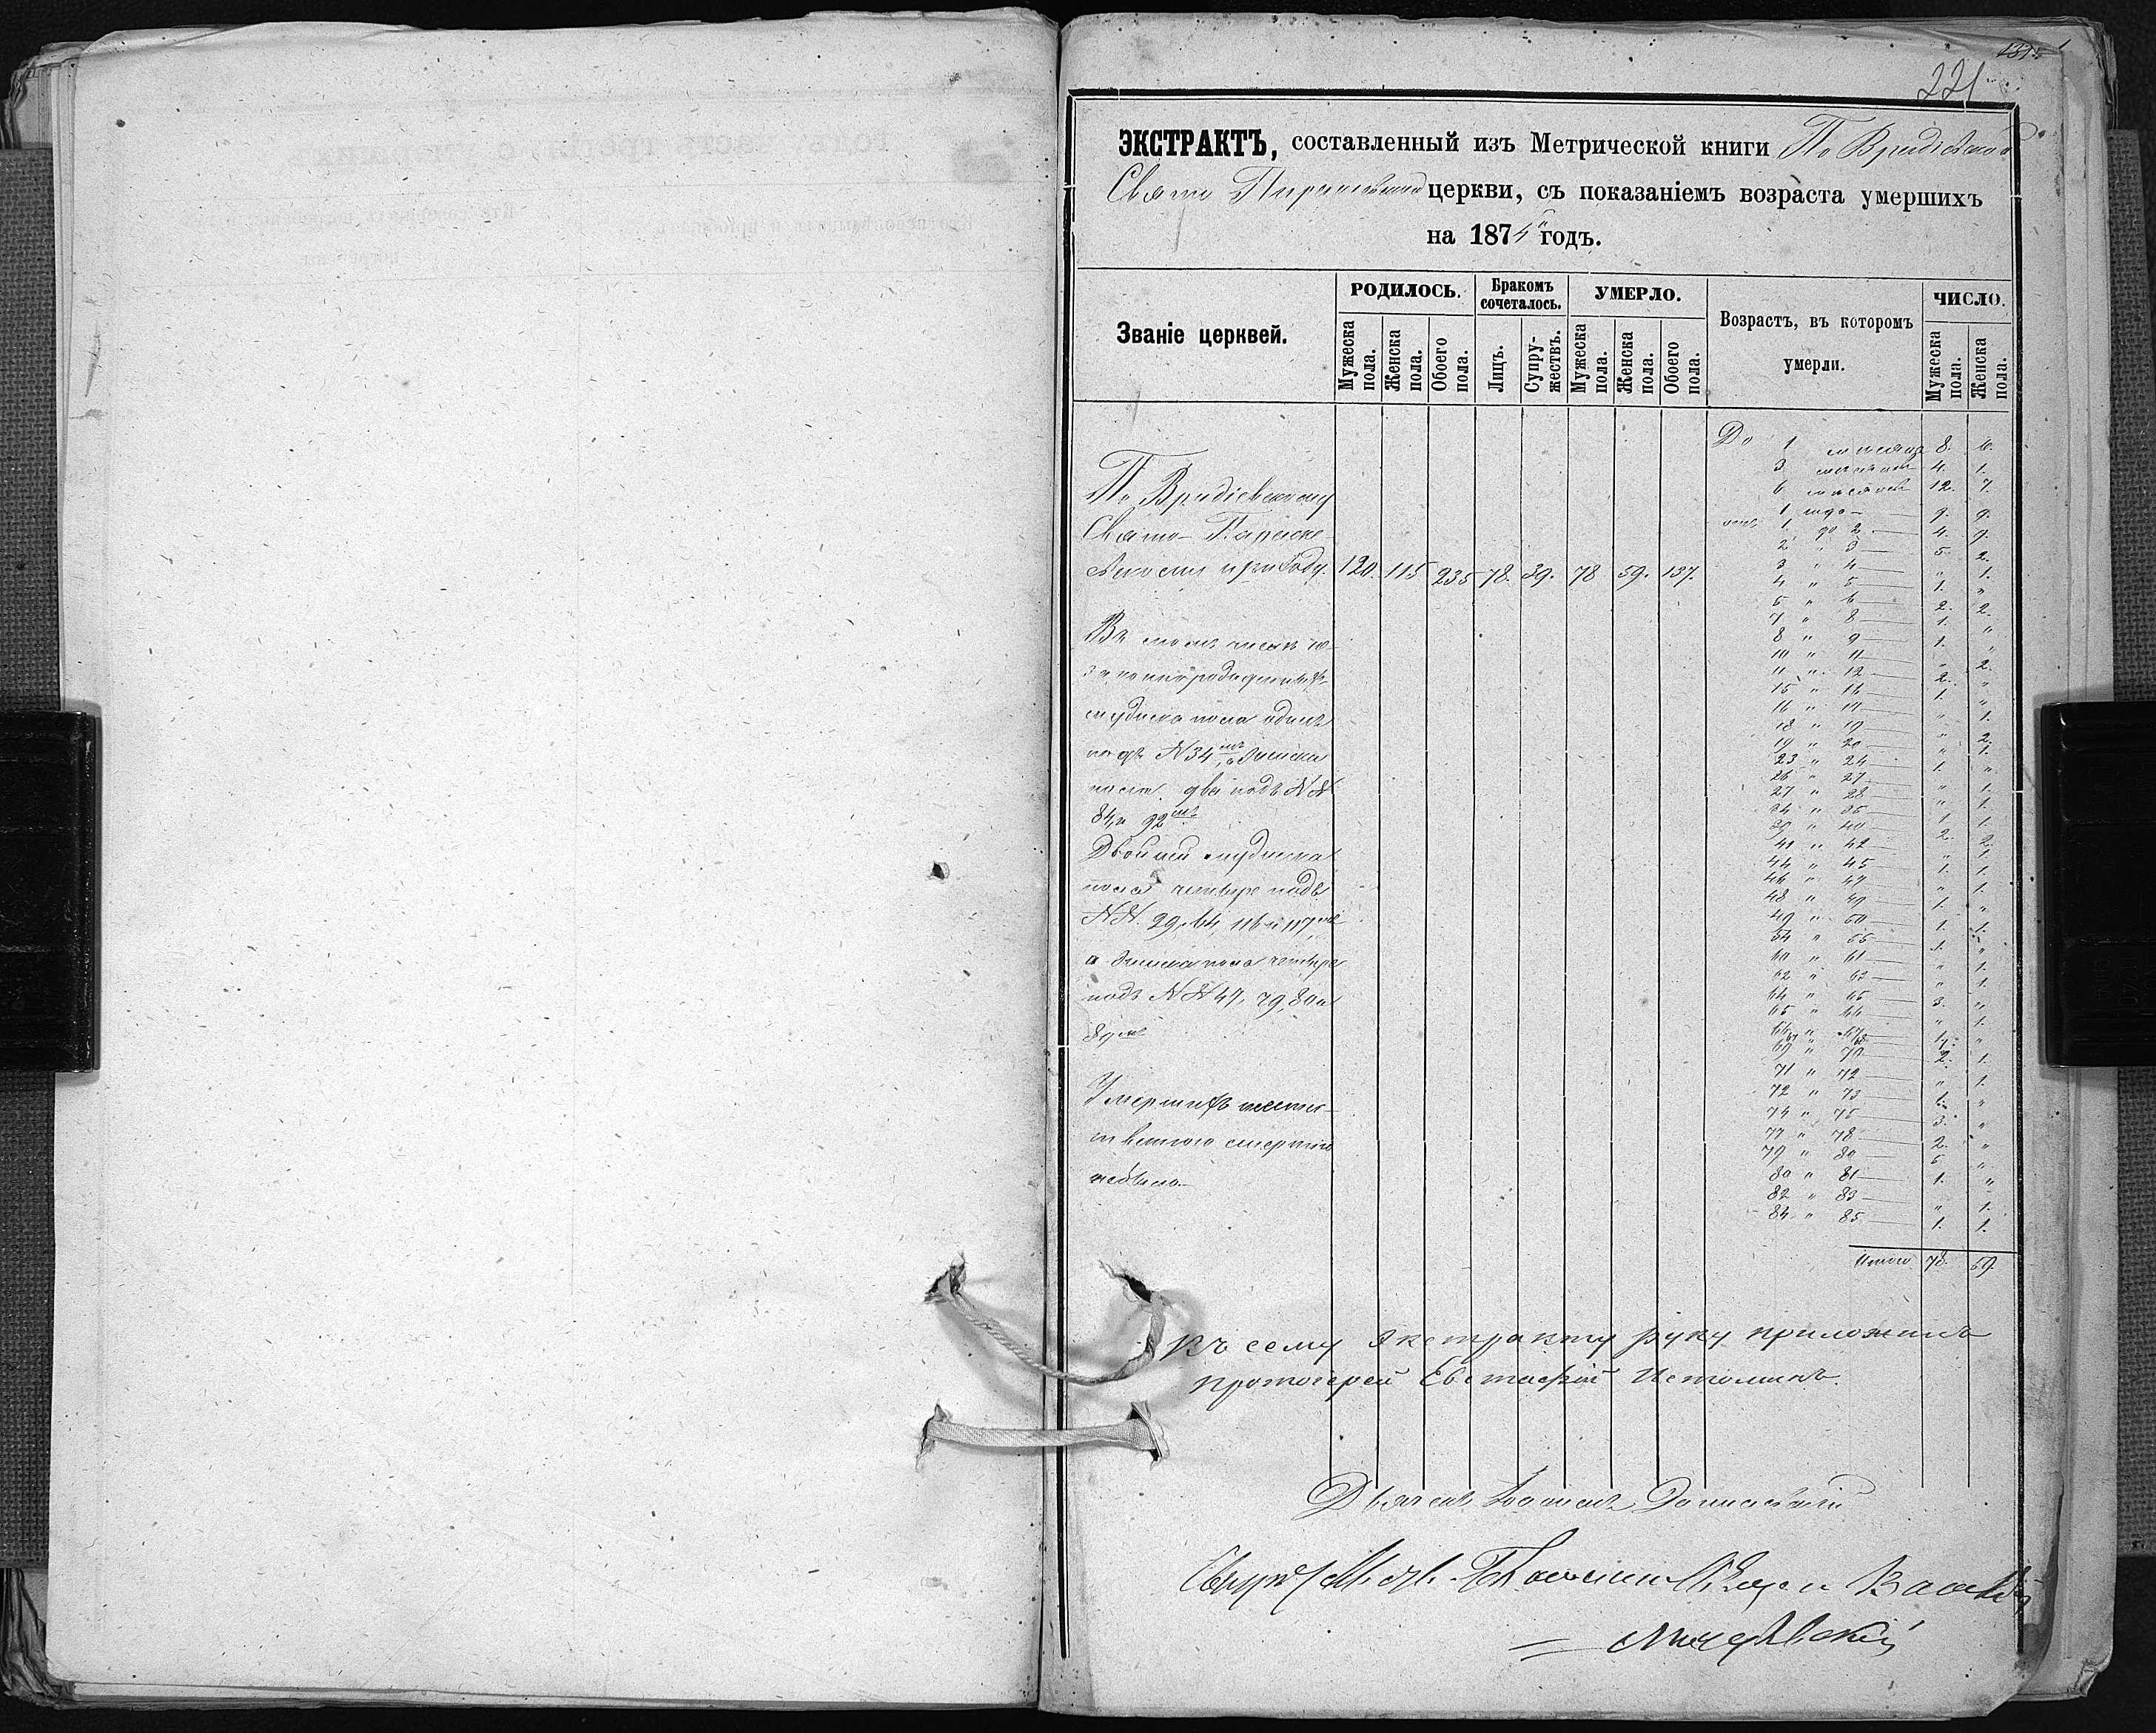 221
ЭКСТРАКТЪ, составленный изъ Метрической книги По Вридіевской
Свято Параскевской церкви, съ показаніемъ возраста умершихъ
на 1874 годъ.
Званіе церквей.
РОДИЛОСЬ.
Бракомъ сочеталось.
УМЕРЛО.
Возрастъ, въ которомъ умерли.
ЧИСЛО.
Мужеска пола.
Женска пола.
Обоего пола.
Лицъ.
Супружествъ.
Мужеска пола.
Женска пола.
Обоего пола.
Мужеска пола.
Женска пола.
По Вридіевскому
Свято-Параске-
вскому приходу. 120. 115 235 78. 39. 78 59. 137.
Въ томъ числѣ не-
законнорожденныхъ
мужеска пола одинъ
подъ N 34мъ, а женска
пола два подъ NN
84, и 92мъ
Двойни мужеска
пола четыре подъ
NN. 29, 64, 116 и 117,мъ
а женска пола четыре
подъ NN 47, 79, 80 и
89мъ
Умершихъ неесте-
ственною смертію
небыло.
До 1 мѣсяца 8. 6.
3 мѣсяцевъ 4. 1.
6 мѣсяцевъ 12. 7.
1 года — 9. 9.
отъ 1 до 2 — 4. 9.
2 " 3 — 5. 2.
3 " 4 — " 1.
4 " 5 — 1. "
5 " 6 — 2. 2.
7 " 8 — 1. "
8 " 9 — 1. "
10 " 11 — " 2.
11 " 12 — 2. "
15 " 16 — 1. "
16 " 17 — " 1.
18 " 19 — " 2.
19 " 20 — " 1.
23 " 24 — 1. "
26 " 27 — " 1.
27 " 28 — " 1.
34 " 35 — 1. 1.
39 " 40 — 2. 2.
41 " 42 — " 1.
44 " 45 — 1. 1.
46 " 47 — " 1.
48 " 49 — 1. "
49 " 50 — 1. 1.
54 " 55 — 1. "
60 " 61 — " 1.
62 " 63 — " 1.
64 " 65 — 3. "
65 " 66 — " 1.
69 " 70 — 2. 1.
71 " 72 — " 1.
72 " 73 — 1. "
74 " 75 — 3. "
77 " 78 — 2. "
79 " 80 — 5 "
80 " 81 — 1. "
82 " 83 — " 1.
84 " 85 — 1. 1.
Итого 78. 59.
Къ сему экстракту руку приложилъ
протоіерей Евстафій Истоминъ.